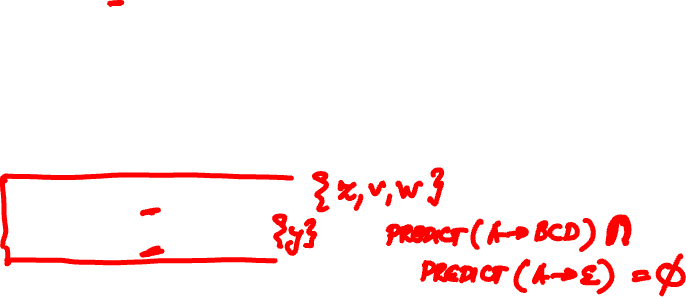 {x,v,w}
{y} PREDICT(A→BCD) ∩
PREDICT(A→ε) = ϕ